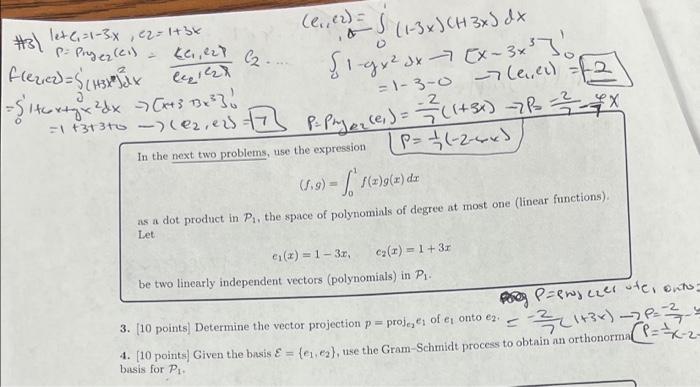 #3) let e₁=1-3x , e2=1+3x
P= Proj e2(e1) = (e1,e2) / (e2,e2) e2 ....
(e1,e2)= ∫₀¹ (1-3x)(1+3x) dx
∫₀¹ 1-9x² dx → [x-3x³]₀¹
= 1-3-0 → (e1,e2) = -2
(e2,e2)=∫₀¹(1+3x)²dx
=∫₀¹ 1+6x+9x²dx → [x+3x²+3x³]₀¹
=1+3+3+0 → (e2,e2)=7
P=Proj e2(e1) = -2/7 (1+3x) → P= -2/7 - 6/7 x
P= 1/7 (-2-6x)
In the next two problems, use the expression
(f, g) = ∫₀¹ f(x)g(x) dx
as a dot product in P₁, the space of polynomials of degree at most one (linear functions).
Let
e₁(x) = 1 − 3x, e₂(x) = 1 + 3x
be two linearly independent vectors (polynomials) in P₁.
of e1 onto
3. [10 points] Determine the vector projection p = proj_{e₂}e₁ of e₁ onto e₂.
= -2/7 (1+3x) → P= -2/7
4. [10 points] Given the basis ℰ = {e₁, e₂}, use the Gram–Schmidt process to obtain an orthonormal
basis for P₁.